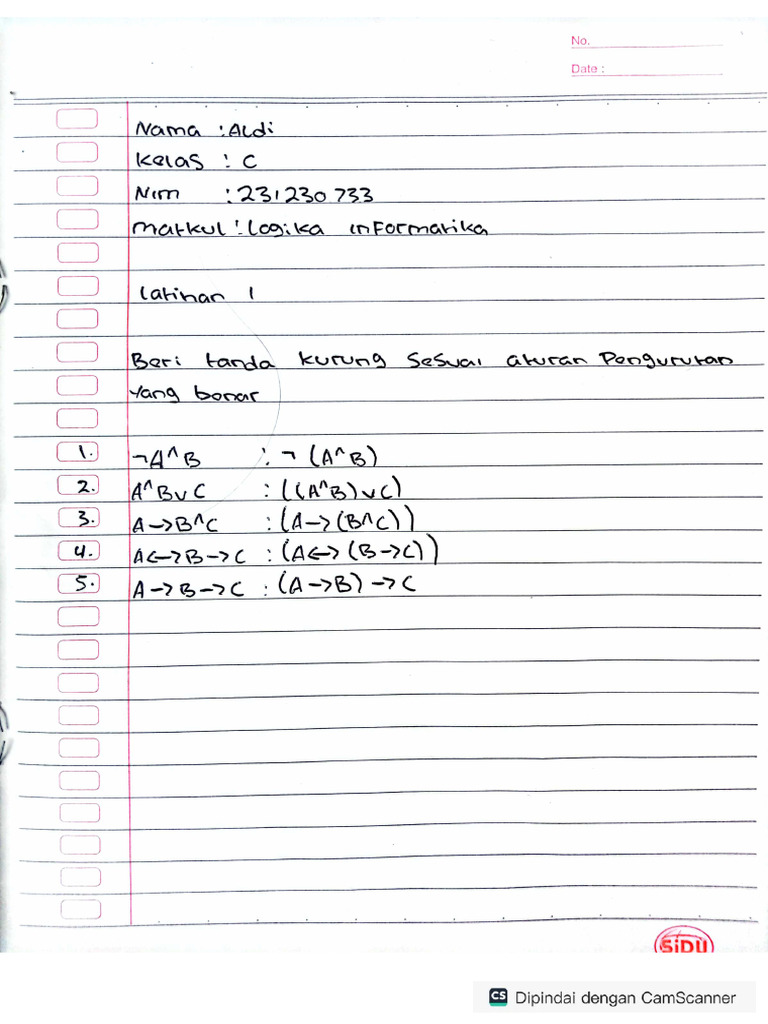 No.
Date :
Nama : Aldi
Kelas : C
Nim : 231230733
Matkul : Logika informatika
Latihan 1
Beri tanda kurung Sesuai aturan Pengurutan
yang benar
1. ¬A^B : ¬ (A^B)
2. A^B∨C : ((A^B)∨C)
3. A→B^C : (A→(B^C))
4. A↔B→C : (A↔(B→C))
5. A→B→C : (A→B)→C
SiDU
CS Dipindai dengan CamScanner